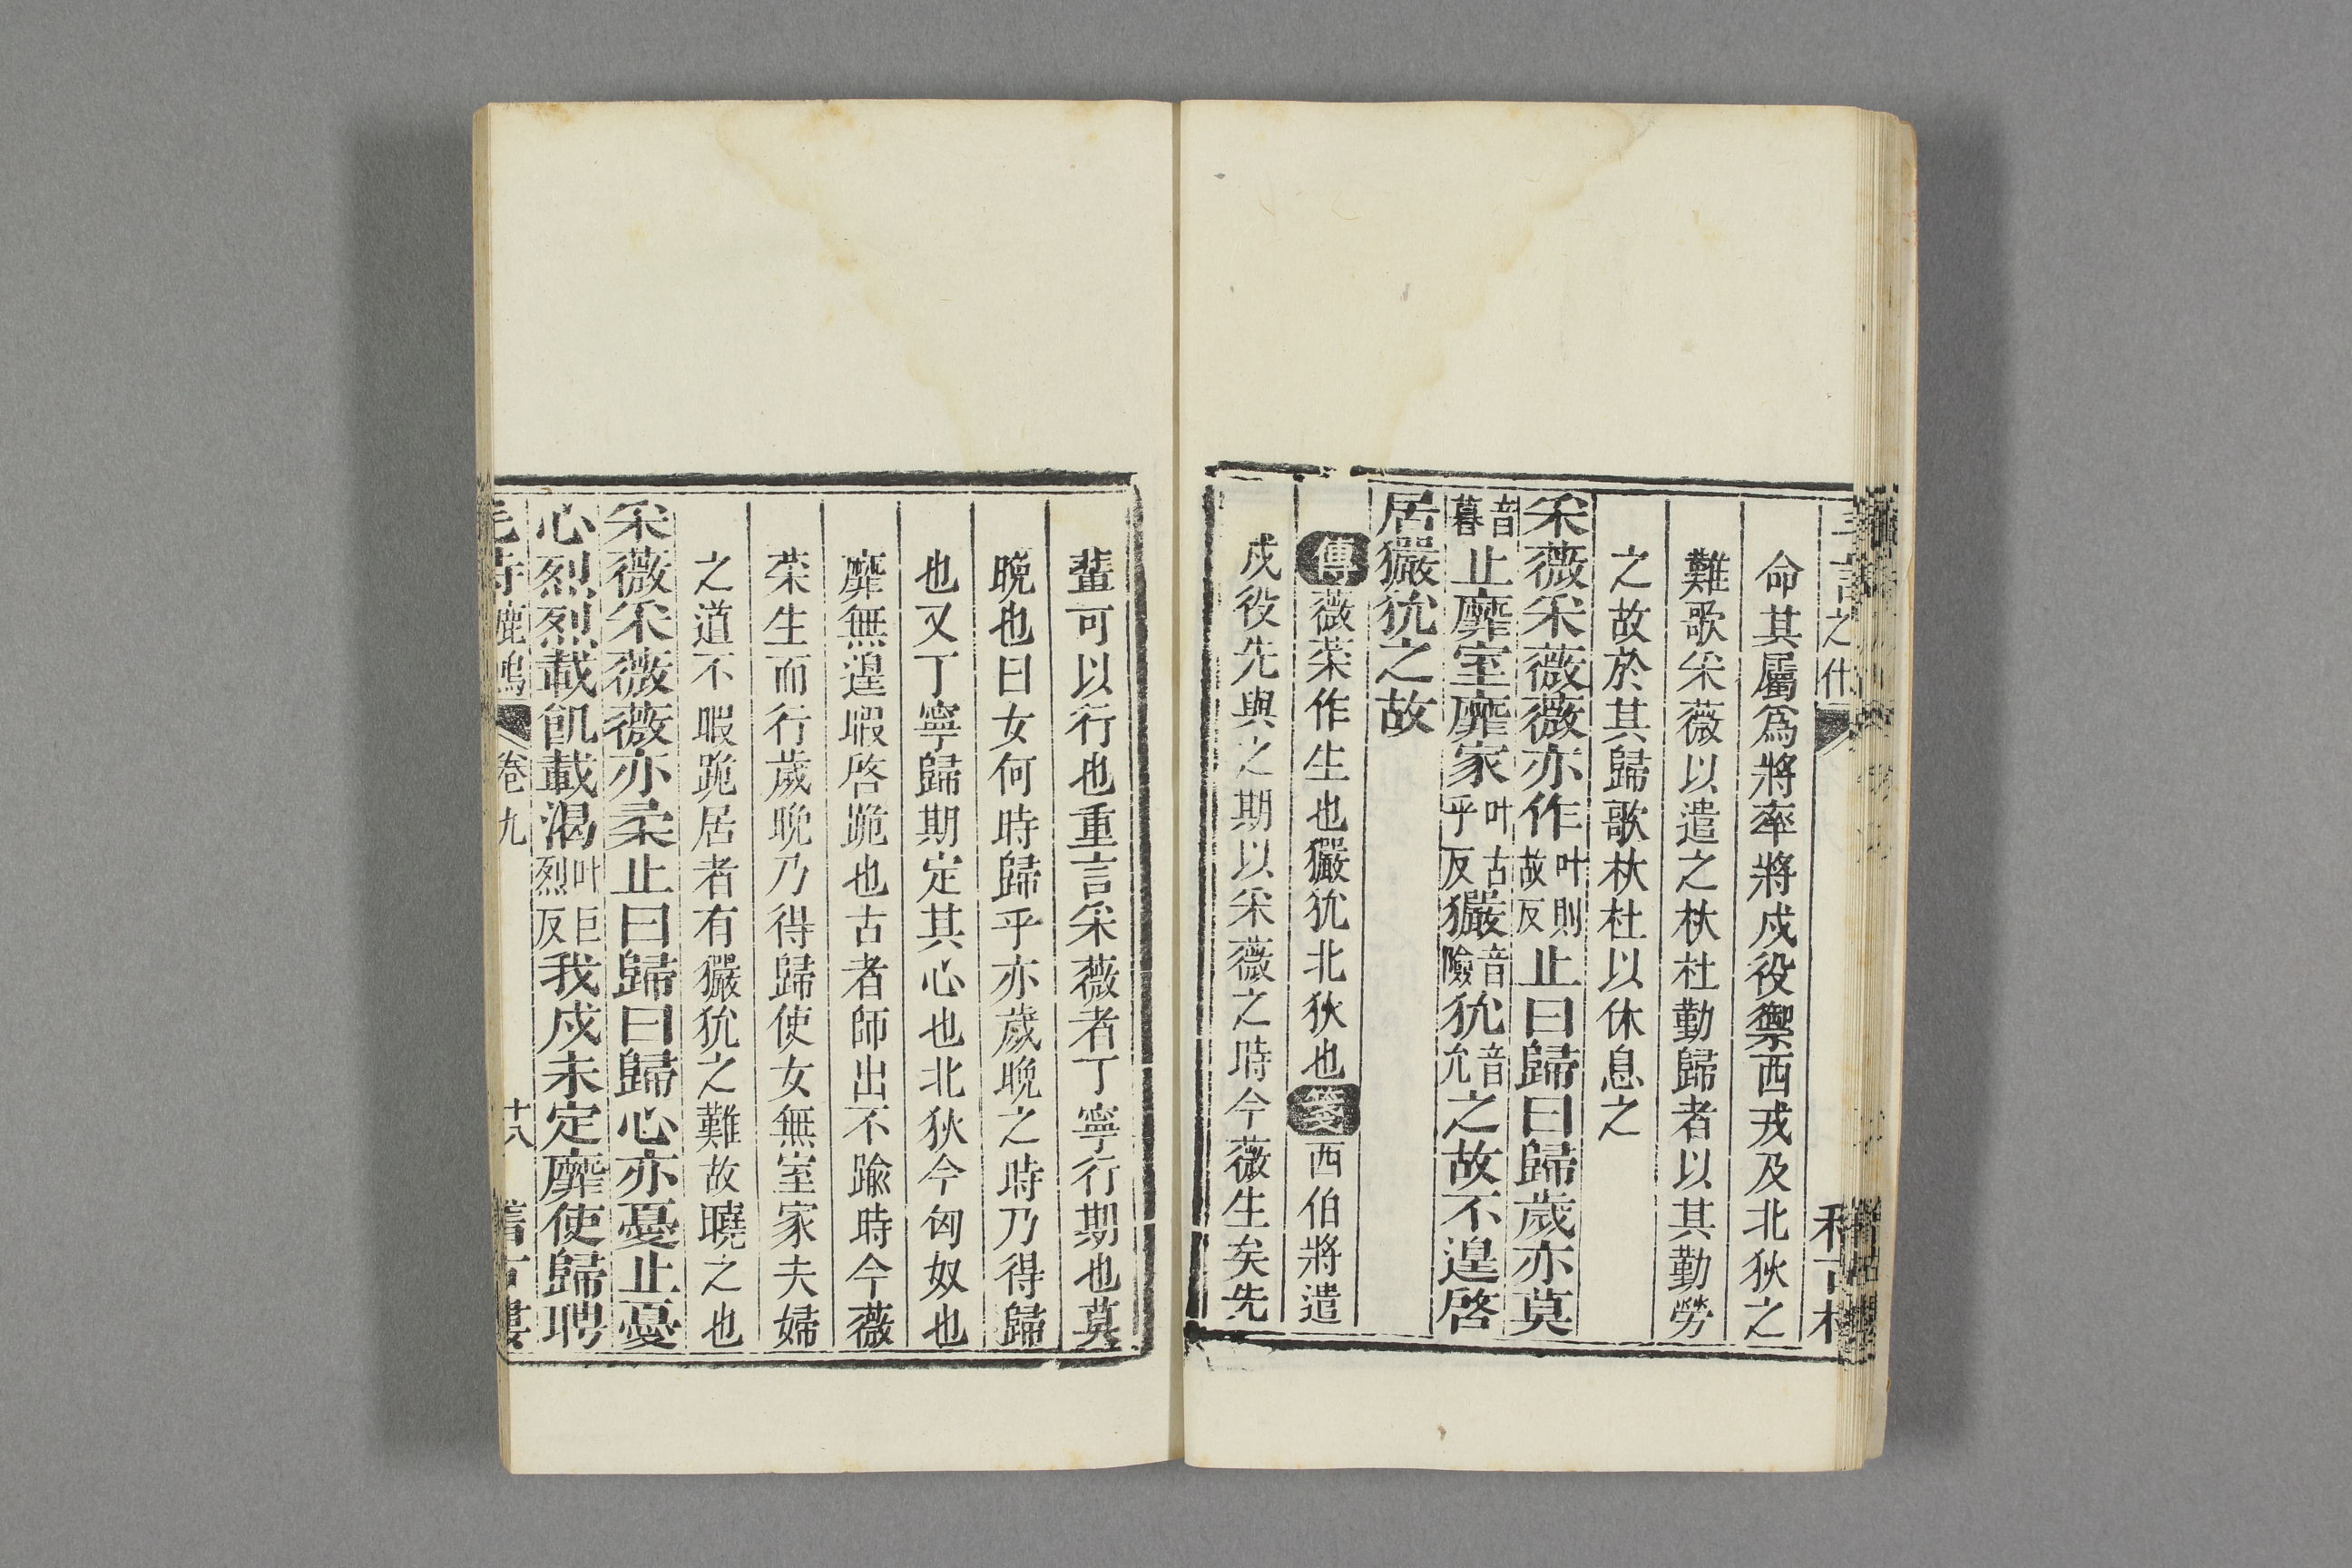 之什
命其屬爲將率將戍役禦西戎及北狄之
難歌采薇以遣之杕杜勤歸者以其勤勞
之故於其歸歌杕杜以休息之
采薇采薇薇亦作叶則故反止曰歸曰歸歲亦莫
音暮止靡室靡家叶古乎反玁音險狁音允之故不遑啓
居玁狁之故
傳薇菜作生也玁狁北狄也箋西伯將遣
戍役先與之期以采薇之時今薇生矣先
輩可以行也重言采薇者丁寧行期也莫
晚也曰女何時歸乎亦歲晚之時乃得歸
也又丁寧歸期定其心也北狄今匈奴也
靡無遑暇啓跪也古者師出不踰時今薇
菜生而行歲晚乃得歸使女無室家夫婦
之道不暇跪居者有玁狁之難故曉之也
采薇采薇薇亦柔止曰歸曰歸心亦憂止憂
心烈烈載飢載渴叶巨烈反我戍未定靡使歸聘
毛詩鹿鳴 卷九 十八 稽古樓